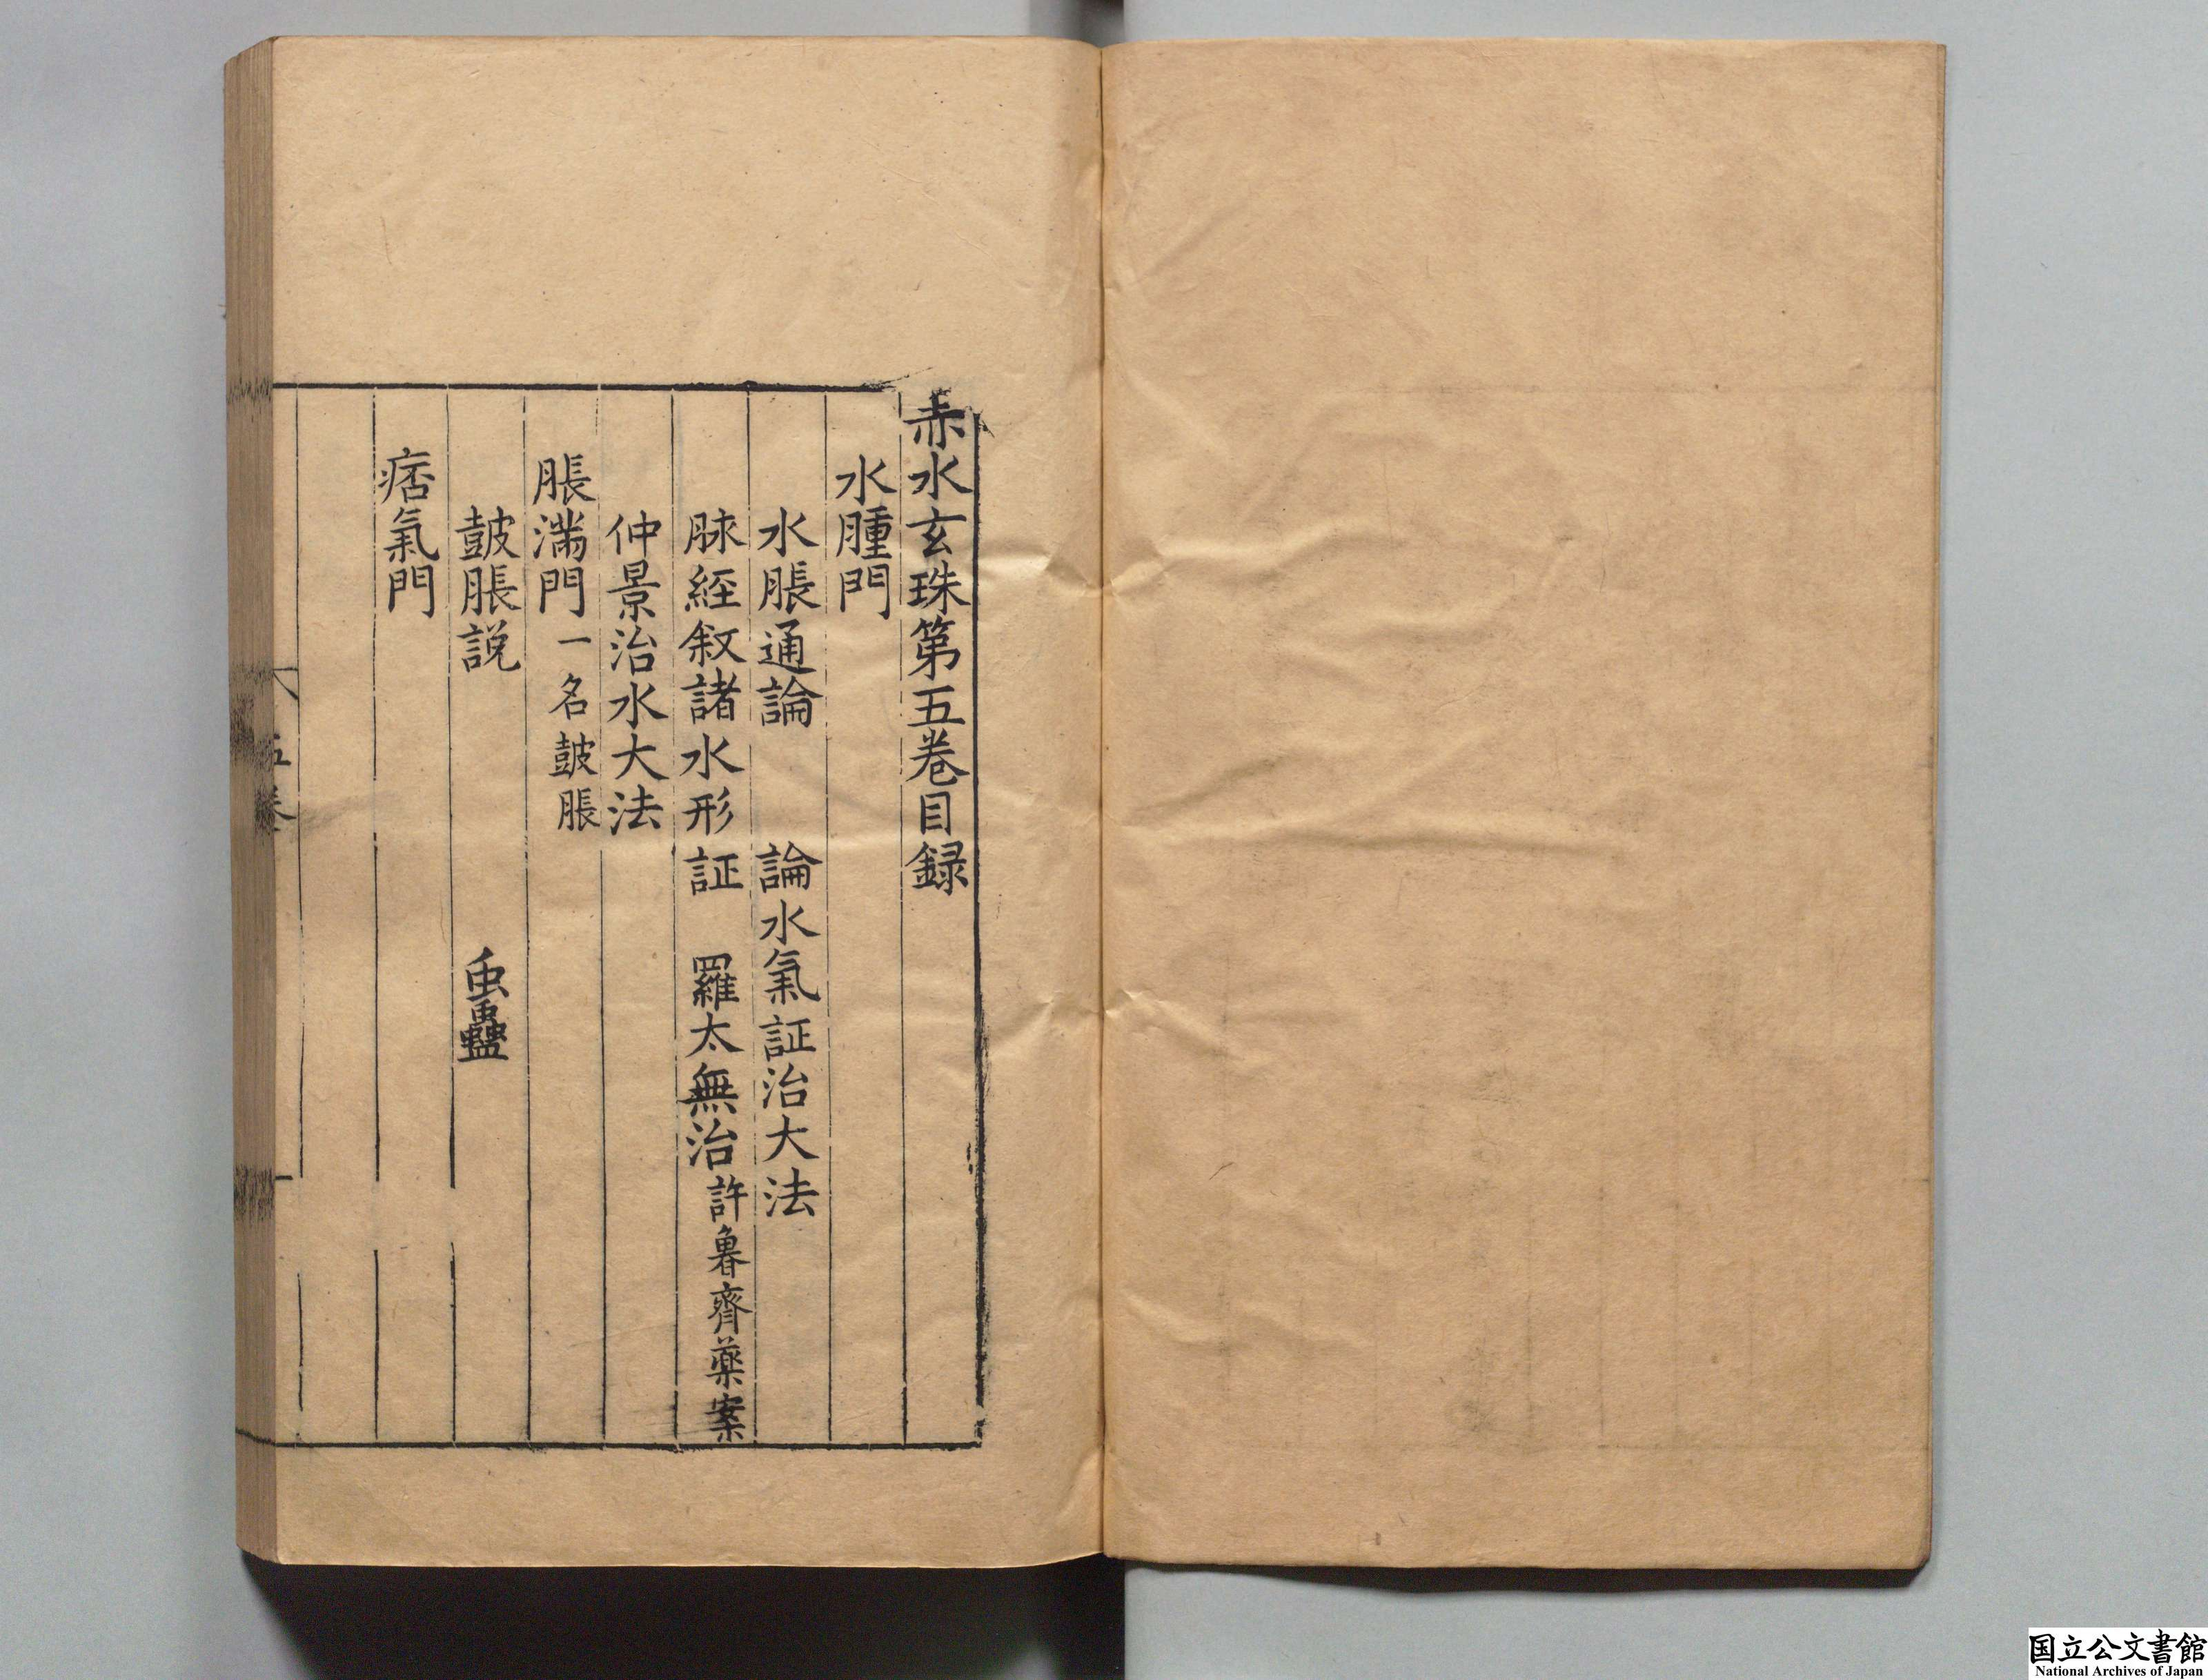 赤水玄珠第五卷目録
水腫門
水脹通論　論水氣証治大法
脉經敘諸水形証　羅太無治許魯齊藥案
仲景治水大法
脹滿門一名皷脹
皷脹説　虫蠱
痞氣門
五卷
国立公文書館
National Archives of Japan